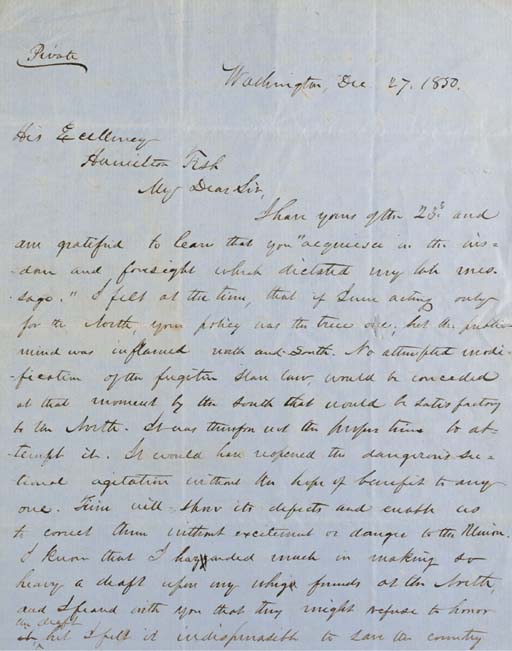 Private
Washington, Dec 27. 1850.
His Excellency
Hamilton Fish
My Dear Sir,
I have yours of the 23d and
am grateful to learn that you "acquiesce in the wis-
-dom and foresight which dictated my late mes-
-sage." I felt at the time, that if I were acting only
for the North, your policy was the true one; but the public
mind was inflamed north and South. No attempted modi-
-fication of the fugitive slave law, would be conceded
at that moment by the South that would be satisfactory
to the North. It was therefore not the proper time to at-
-tempt it. It would have reopened the dangerous sec-
tional agitation without the hope of benefit to any
one. Time will show its defects and enable us
to correct them without excitement or danger to the Union.
I know that I hazarded much in making so
heavy a draft upon my whig friends at the North,
and I feared with you that they might refuse to honor
the draft
it, but I felt it indispensible to save the country